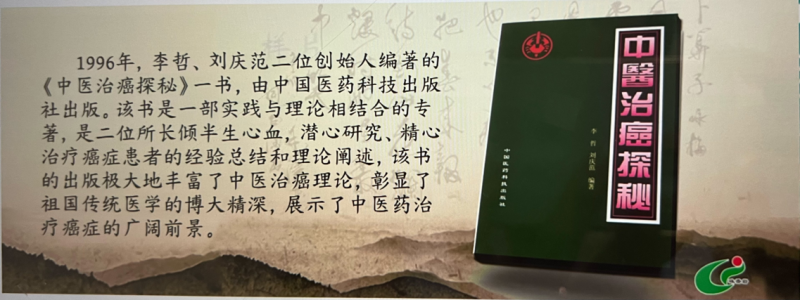 1996年，李哲、刘庆范二位创始人编著的
《中医治癌探秘》一书，由中国医药科技出版
社出版。该书是一部实践与理论相结合的专
著，是二位所长倾半生心血，潜心研究、精心
治疗癌症患者的经验总结和理论阐述，该书
的出版极大地丰富了中医治癌理论，彰显了
祖国传统医学的博大精深，展示了中医药治
疗癌症的广阔前景。
中醫治癌探秘
李 哲 刘庆范 编著
中国医药科技出版社